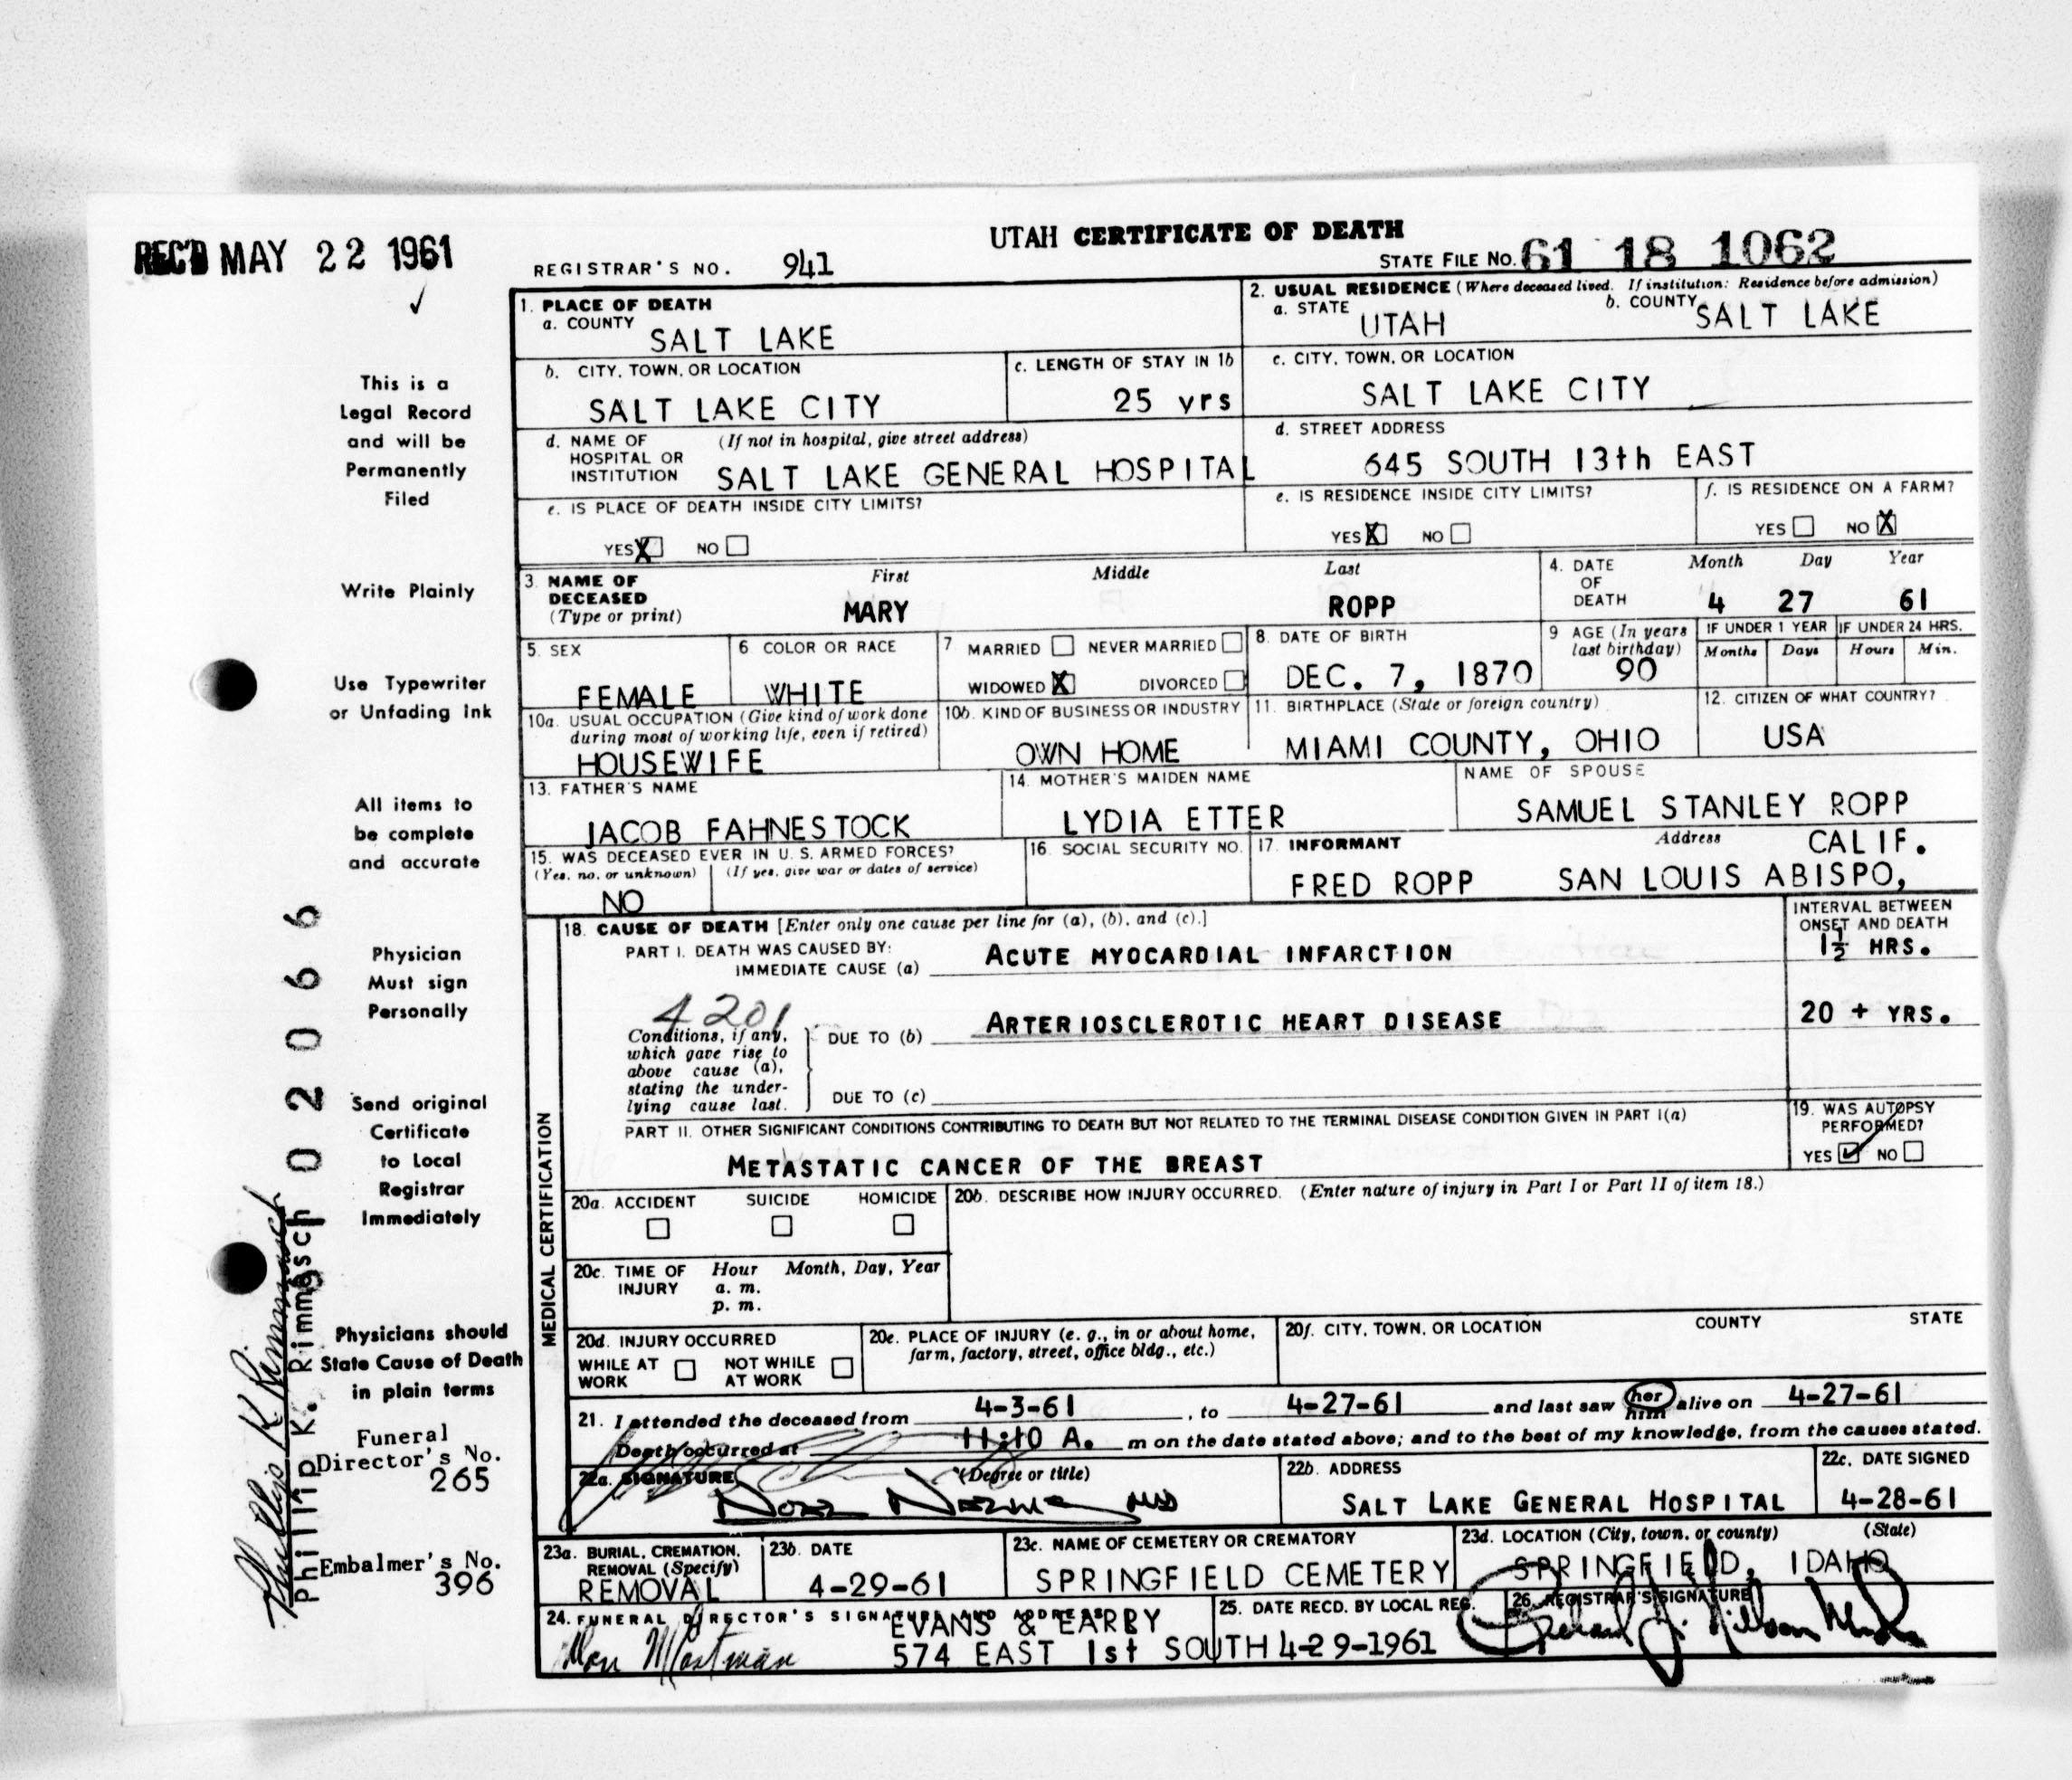 UTAH CERTIFICATE OF DEATH
REC'D MAY 22 1961
REGISTRAR'S NO. 941
STATE FILE NO. 61 18 1062
✓
This is a
Legal Record
and will be
Permanently
Filed
Write Plainly
Use Typewriter
or Unfading Ink
All items to
be complete
and accurate
Physician
Must sign
Personally
Send original
Certificate
to Local
Registrar
Immediately
Physicians should
State Cause of Death
in plain terms
Funeral
Director's No.
265
Embalmer's No.
396
02066
Phillip K. Rimmasch
Phillip K. Rimmasch
1. PLACE OF DEATH
a. COUNTY SALT LAKE
2. USUAL RESIDENCE (Where deceased lived. If institution: Residence before admission)
a. STATE UTAH b. COUNTY SALT LAKE
b. CITY, TOWN, OR LOCATION
SALT LAKE CITY
c. LENGTH OF STAY IN 1b
25 yrs
c. CITY, TOWN, OR LOCATION
SALT LAKE CITY
d. NAME OF HOSPITAL OR INSTITUTION (If not in hospital, give street address)
SALT LAKE GENERAL HOSPITAL
d. STREET ADDRESS
645 SOUTH 13th EAST
e. IS PLACE OF DEATH INSIDE CITY LIMITS?
YES X NO
e. IS RESIDENCE INSIDE CITY LIMITS?
YES X NO
f. IS RESIDENCE ON A FARM?
YES NO X
3. NAME OF DECEASED (Type or print)
First Middle Last
MARY ROPP
4. DATE OF DEATH
Month Day Year
4 27 61
5. SEX
FEMALE
6. COLOR OR RACE
WHITE
7. MARRIED NEVER MARRIED
WIDOWED X DIVORCED
8. DATE OF BIRTH
DEC. 7, 1870
9 AGE (In years last birthday)
90
IF UNDER 1 YEAR
Months Days
IF UNDER 24 HRS.
Hours Min.
10a. USUAL OCCUPATION (Give kind of work done during most of working life, even if retired)
HOUSEWIFE
10b. KIND OF BUSINESS OR INDUSTRY
OWN HOME
11. BIRTHPLACE (State or foreign country)
MIAMI COUNTY, OHIO
12. CITIZEN OF WHAT COUNTRY?
USA
13. FATHER'S NAME
JACOB FAHNESTOCK
14. MOTHER'S MAIDEN NAME
LYDIA ETTER
NAME OF SPOUSE
SAMUEL STANLEY ROPP
15. WAS DECEASED EVER IN U. S. ARMED FORCES?
(Yes, no, or unknown) (If yes, give war or dates of service)
NO
16. SOCIAL SECURITY NO.
17. INFORMANT Address CALIF.
FRED ROPP SAN LOUIS ABISPO,
MEDICAL CERTIFICATION
18. CAUSE OF DEATH [Enter only one cause per line for (a), (b), and (c).]
INTERVAL BETWEEN ONSET AND DEATH
PART I. DEATH WAS CAUSED BY:
IMMEDIATE CAUSE (a) ACUTE MYOCARDIAL INFARCTION 1½ HRS.
4201
Conditions, if any, which gave rise to above cause (a), stating the underlying cause last.
DUE TO (b) ARTERIOSCLEROTIC HEART DISEASE 20 + YRS.
DUE TO (c)
PART II. OTHER SIGNIFICANT CONDITIONS CONTRIBUTING TO DEATH BUT NOT RELATED TO THE TERMINAL DISEASE CONDITION GIVEN IN PART I(a)
METASTATIC CANCER OF THE BREAST
19. WAS AUTOPSY PERFORMED?
YES ✓ NO
20a. ACCIDENT SUICIDE HOMICIDE
20b. DESCRIBE HOW INJURY OCCURRED. (Enter nature of injury in Part I or Part II of item 18.)
20c. TIME OF INJURY Hour Month, Day, Year
a. m.
p. m.
20d. INJURY OCCURRED
WHILE AT WORK NOT WHILE AT WORK
20e. PLACE OF INJURY (e. g., in or about home, farm, factory, street, office bldg., etc.)
20f. CITY, TOWN, OR LOCATION COUNTY STATE
21. I attended the deceased from 4-3-61, to 4-27-61 and last saw her him alive on 4-27-61
Death occurred at 11:10 A. m on the date stated above; and to the best of my knowledge, from the causes stated.
22a. SIGNATURE (Degree or title)
MD
22b. ADDRESS
SALT LAKE GENERAL HOSPITAL
22c. DATE SIGNED
4-28-61
23a. BURIAL, CREMATION, REMOVAL (Specify)
REMOVAL
23b. DATE
4-29-61
23c. NAME OF CEMETERY OR CREMATORY
SPRINGFIELD CEMETERY
23d. LOCATION (City, town, or county) (State)
SPRINGFIELD, IDAHO
24. FUNERAL DIRECTOR'S SIGNATURE AND ADDRESS
EVANS & EARLY
574 EAST 1st SOUTH
25. DATE RECD. BY LOCAL REG.
4-29-1961
26. REGISTRAR'S SIGNATURE